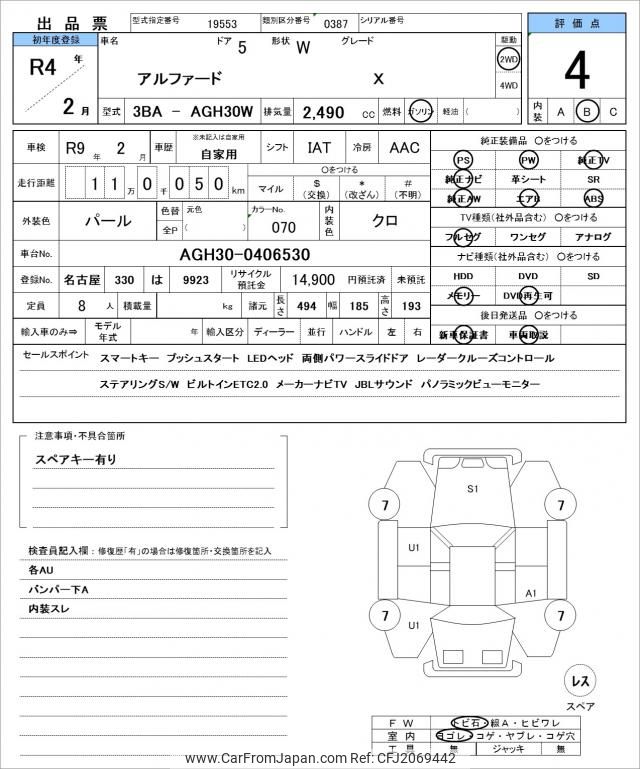 出品票 型式指定番号 19553 類別区分番号 0387 シリアル番号 評価点
初年度登録 車名 ドア 5 形状 W グレード 駆動
R4 年 アルファード X 2WD 4
2 月 4WD
型式 3BA － AGH30W 排気量 2,490 CC 燃料 ガソリン 軽油 ( ) 内装 A B C
車検 R9 年 2 月 車歴 ※未記入は自家用 自家用 シフト IAT 冷房 AAC 純正装備品 〇をつける
PS PW 純正TV
走行距離 1 1 万 0 千 0 5 0 km 〇をつける マイル $ (交換) * (改ざん) # (不明) 純正ナビ 革シート SR
純正AW エアB ABS
外装色 パール 色替 元色 全P ( ) カラーNo. 070 内装色 クロ TV種類(社外品含む) 〇をつける
フルセグ ワンセグ アナログ
車台No. AGH30-0406530 ナビ種類(社外品含む) 〇をつける
登録No. 名古屋 330 は 9923 リサイクル預託金 14,900 円預託済 未預託 HDD DVD SD
定員 8 人 積載量 kg 諸元 長さ 494 幅 185 高さ 193 メモリー DVD再生可
後日発送品 〇をつける
輸入車のみ⇒ モデル年式 年 輸入区分 ディーラー 並行 ハンドル 左 右 新車保証書 車両取説
セールスポイント スマートキー プッシュスタート LEDヘッド 両側パワースライドドア レーダークルーズコントロール
ステアリングS/W ビルトインETC2.0 メーカーナビTV JBLサウンド パノラミックビューモニター
注意事項・不具合箇所
スペアキー有り
検査員記入欄：修復歴「有」の場合は修復箇所・交換箇所を記入
各AU
バンパー下A
内装スレ
S1
7 7
U1
A1
7 U1 7
レス
スペア
FW トビ石・線A・ヒビワレ
室内 ヨゴレ・コゲ・ヤブレ・コゲ穴
工具 無 ジャッキ 無
www.CarFromJapan.com Ref: CFJ2069442